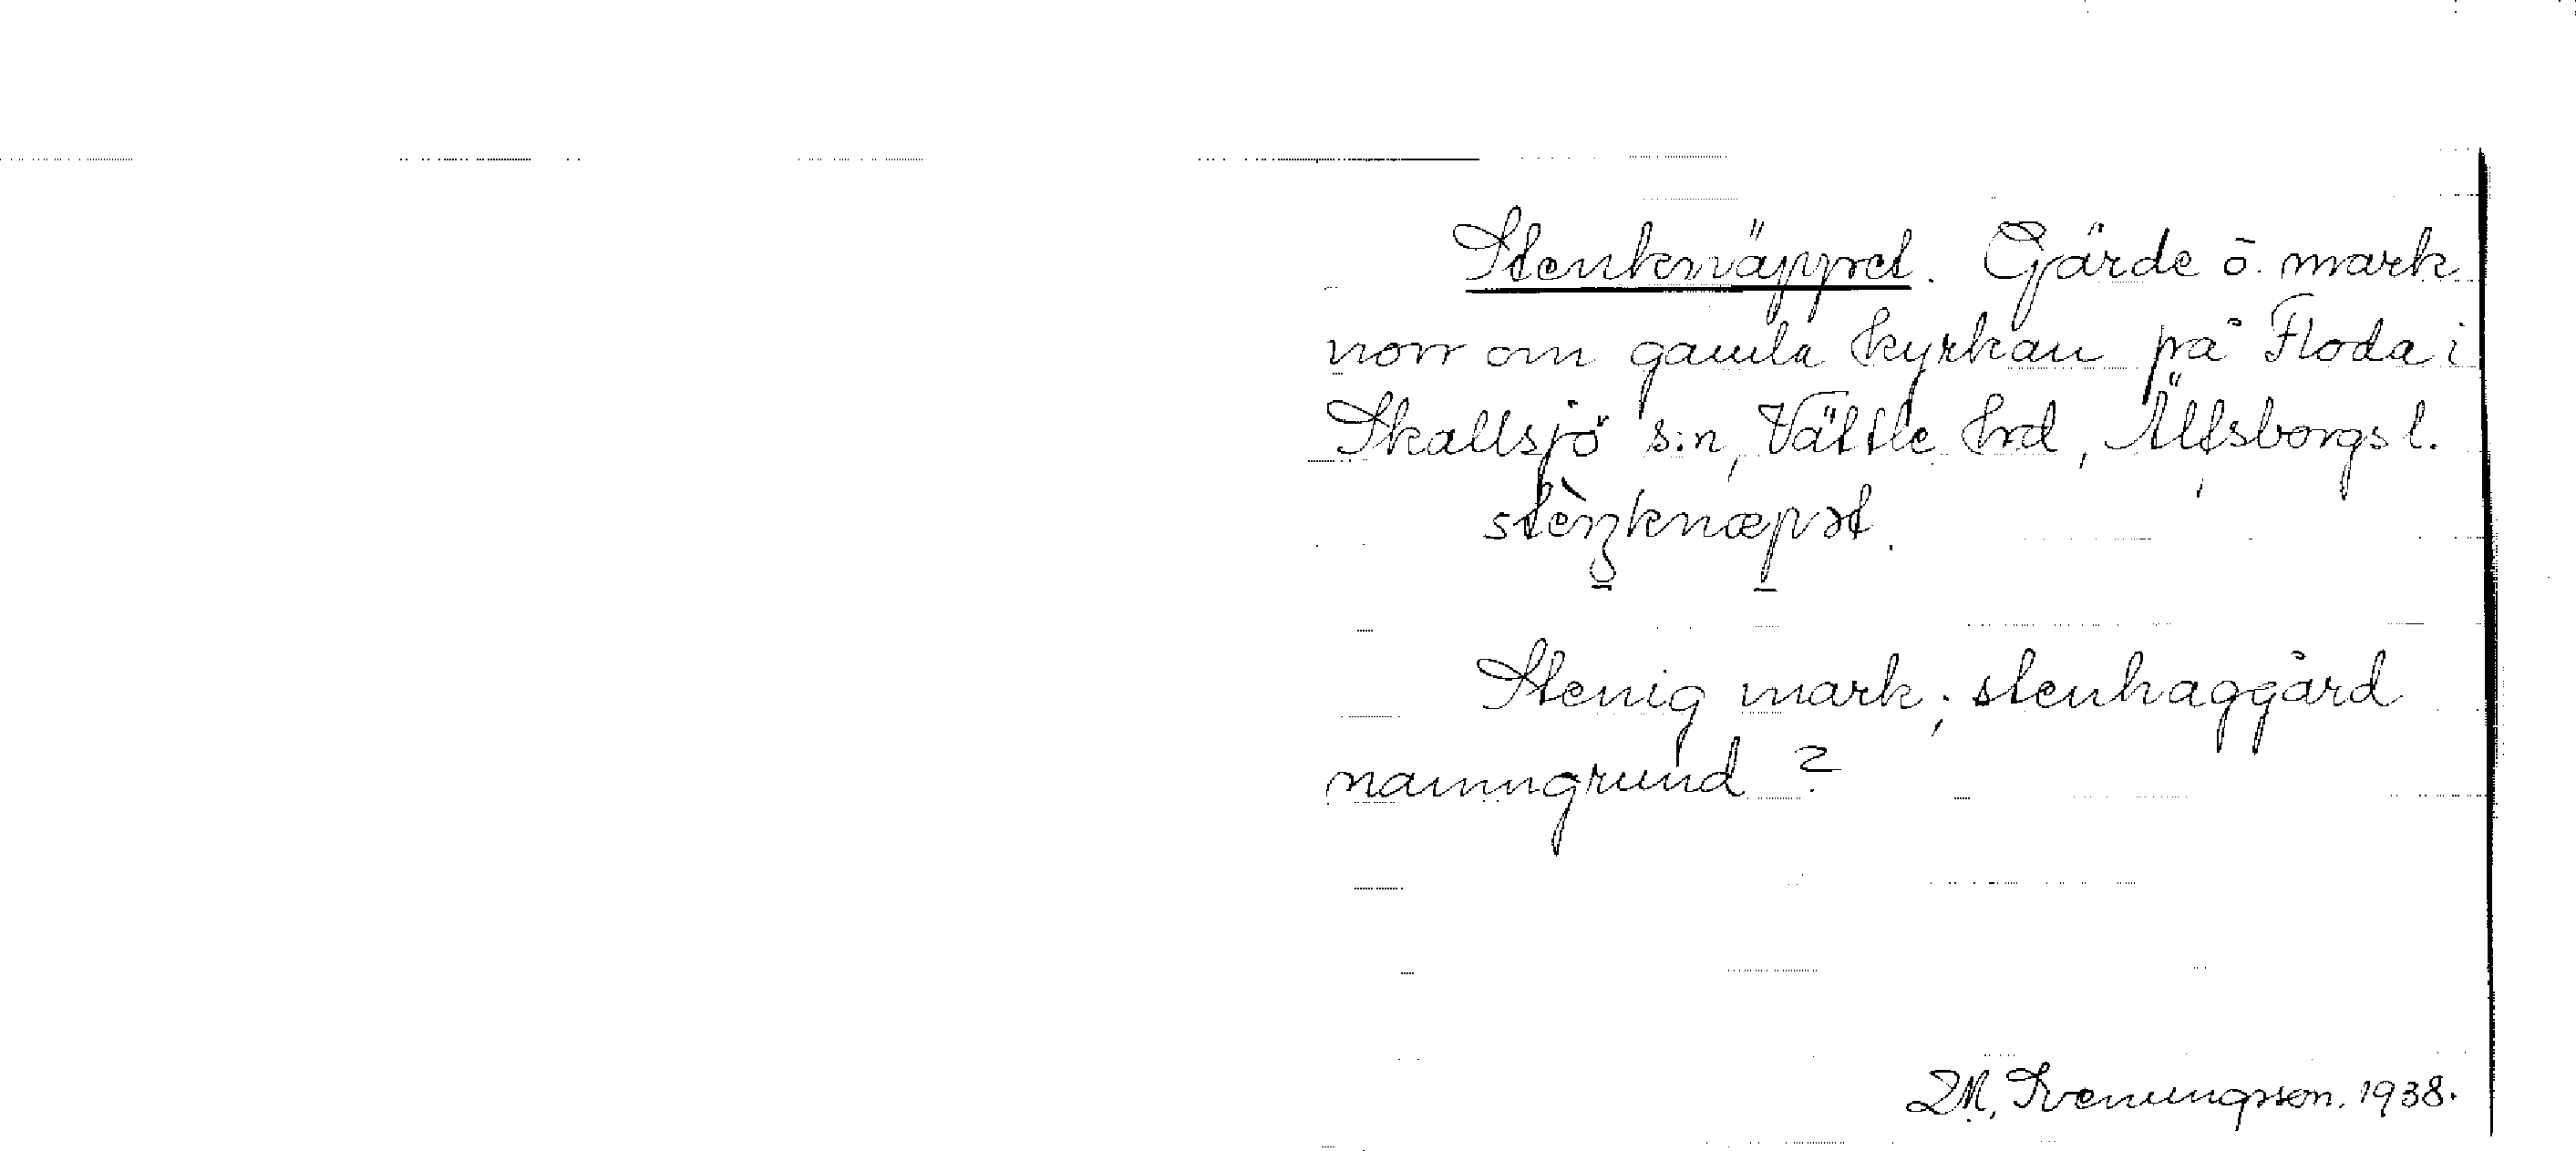 Stenknäppet. Gärde o. mark
norr om gamla kyrkan på Floda i
Skallsjö s:n, Vättle hrd, Älfsborgs l.
stèn̥knæpət.
Stenig mark; stenhaggård
namngrund?
D.M. Svenungsson. 1938.